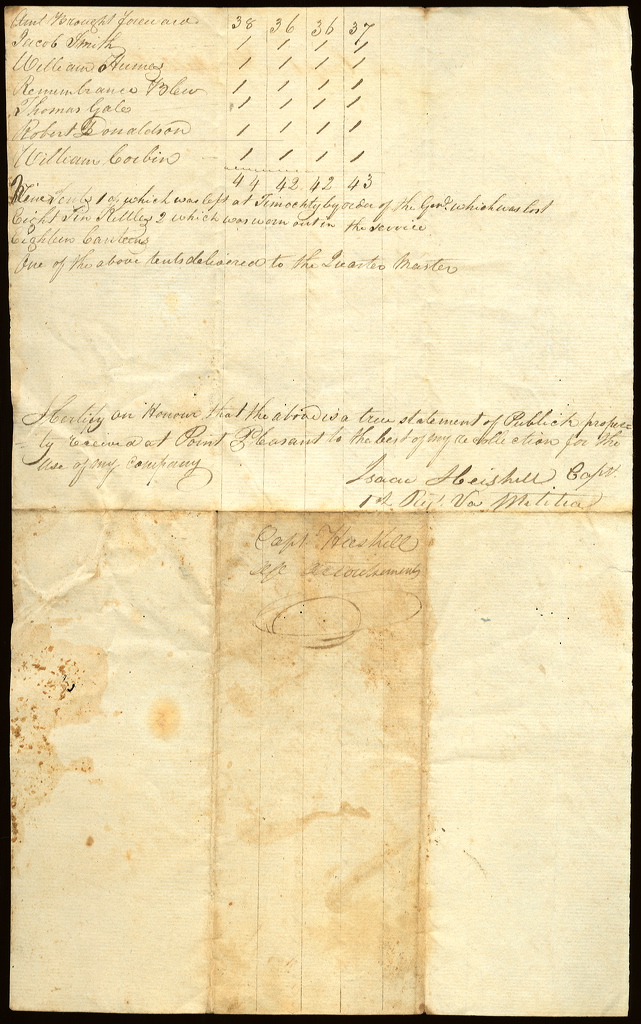 Amt Brought forward 38 36 36 37
Jacob Smith 1 1 1 1
William Humes 1 1 1 1
Remembrance Blew 1 1 1 1
Thomas Gale 1 1 1 1
Robert Donaldson 1 1 1 1
William Corbin 1 1 1 1
44 42 42 43
Nine Tents 1 of which was left at by order of the Genl. which was lost
Eight Tin Kettles 2 which was worn out in the service
Eighteen Canteens
One of the above tents delivered to the Quarter Master
I Certify on Honour that the above is a true statement of Publick proper
ty received at Point Pleasant to the best of my recollection for the
use of my company
Isaac Heiskell Capt
1st Regt Va Militia
Capt Heiskell
accoutrements